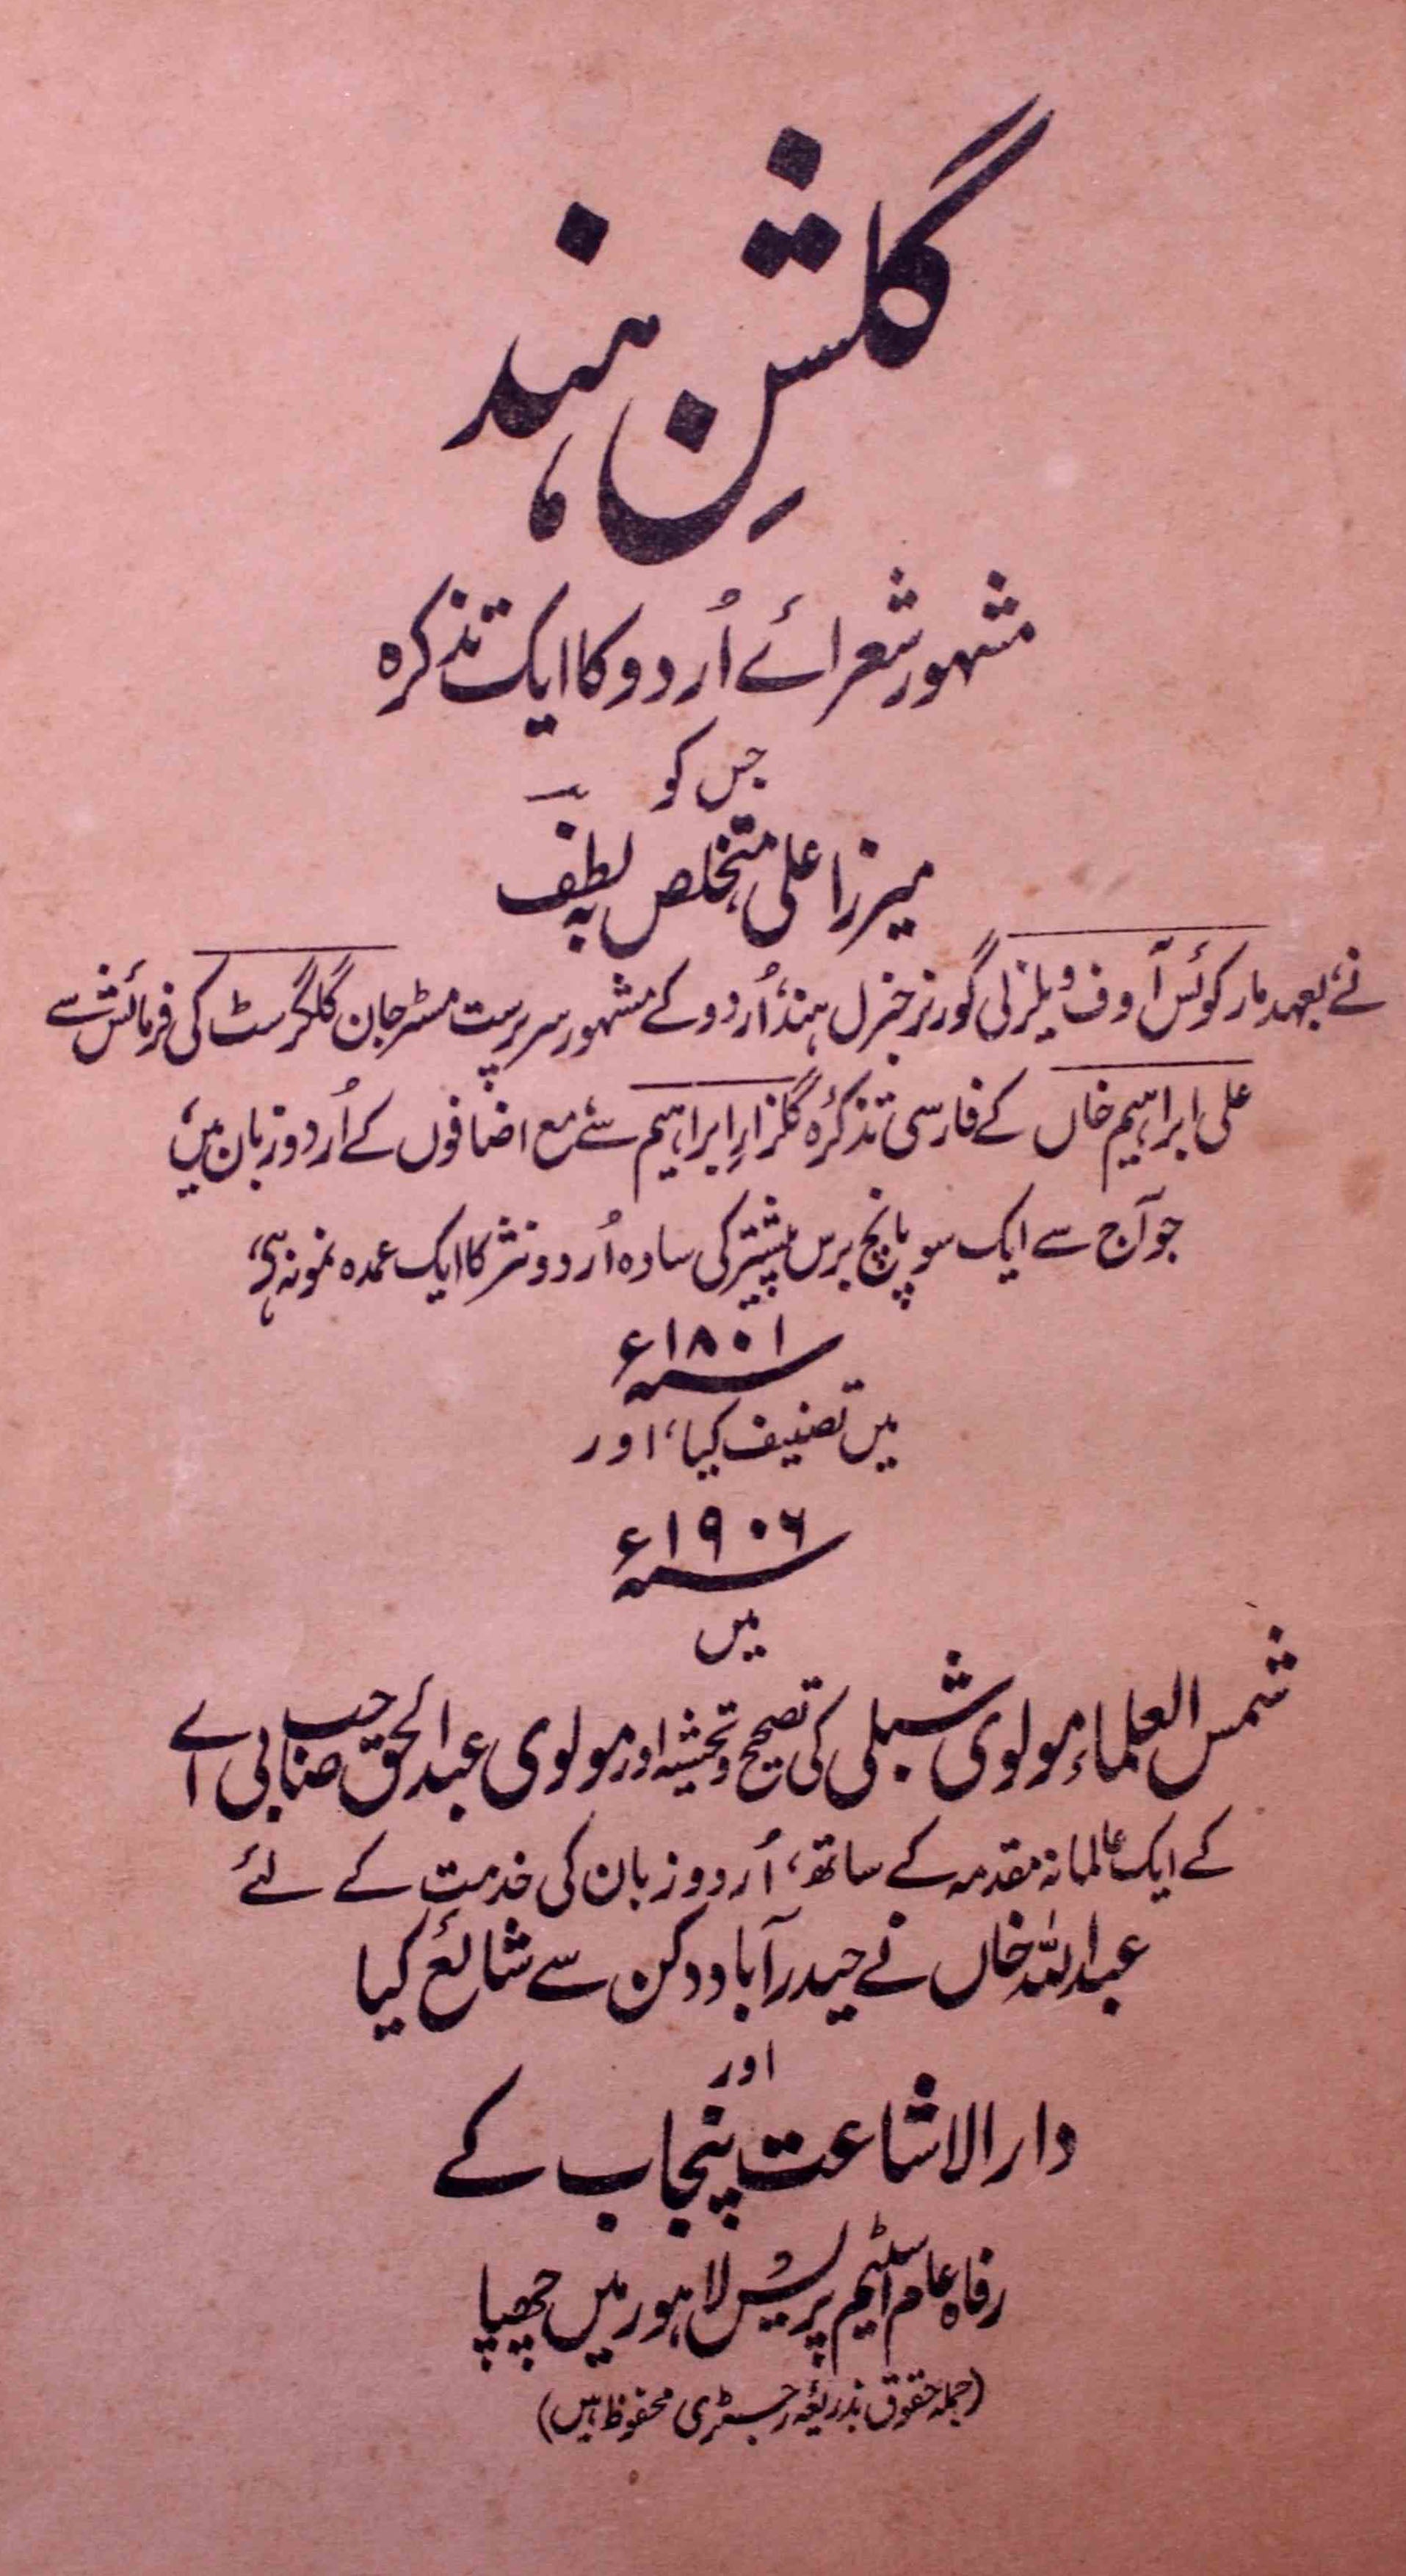 گلشنِ ہند
مشہور شعرائے اُردو کا ایک تذکرہ
جس کو
میرزا علی متخلص بہ لطف
نے، بعہد مارکوئس آوف ویلزلی گورنر جنرل ہند، اُردو کے مشہور سرپرست مسٹر جان گلگرسٹ کی فرمائش سے
علی ابراہیم خاں کے فارسی تذکرۂ گلزارِ ابراہیم سے، مع اضافوں کے اُردو زبان میں،
جو آج سے ایک سو پانچ برس پیشتر کی سادہ اُردو نثر کا ایک عمدہ نمونہ ہی،
سنہ ۱۸۰۱ء
میں تصنیف کیا، اور
سنہ ۱۹۰۶ء
میں
شمس العلماء مولوی شبلی کی تصحیح و تحشیہ اور مولوی عبدالحق صاحب بی اے
کے ایک عالمانہ مقدمہ کے ساتھ، اُردو زبان کی خدمت کے لئے
عبداللہ خاں نے حیدرآباد دکن سے شائع کیا
اور
دارالاشاعت پنجاب کے
رفاہ عام اسٹیم پریس لاہور میں چھپا
(جملہ حقوق بذریعہ رجسٹری محفوظ ہیں)